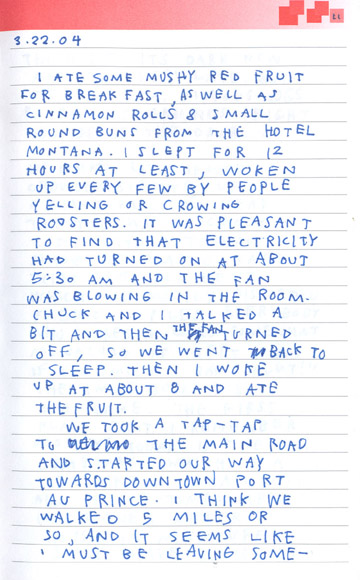 3.22.04
I ATE SOME MUSHY RED FRUIT
FOR BREAKFAST, AS WELL AS
CINNAMON ROLLS & SMALL
ROUND BUNS FROM THE HOTEL
MONTANA. I SLEPT FOR 12
HOURS AT LEAST, WOKEN
UP EVERY FEW BY PEOPLE
YELLING OR CROWING
ROOSTERS. IT WAS PLEASANT
TO FIND THAT ELECTRICITY
HAD TURNED ON AT ABOUT
5:30 AM AND THE FAN
WAS BLOWING IN THE ROOM.
CHUCK AND I TALKED A
BIT AND THEN THE FAN TURNED
OFF, SO WE WENT BACK TO
SLEEP. THEN I WOKE
UP AT ABOUT 8 AND ATE
THE FRUIT.
WE TOOK A TAP-TAP
TO THE MAIN ROAD
AND STARTED OUR WAY
TOWARDS DOWNTOWN PORT
AU PRINCE. I THINK WE
WALKED 5 MILES OR
SO, AND IT SEEMS LIKE
I MUST BE LEAVING SOME-